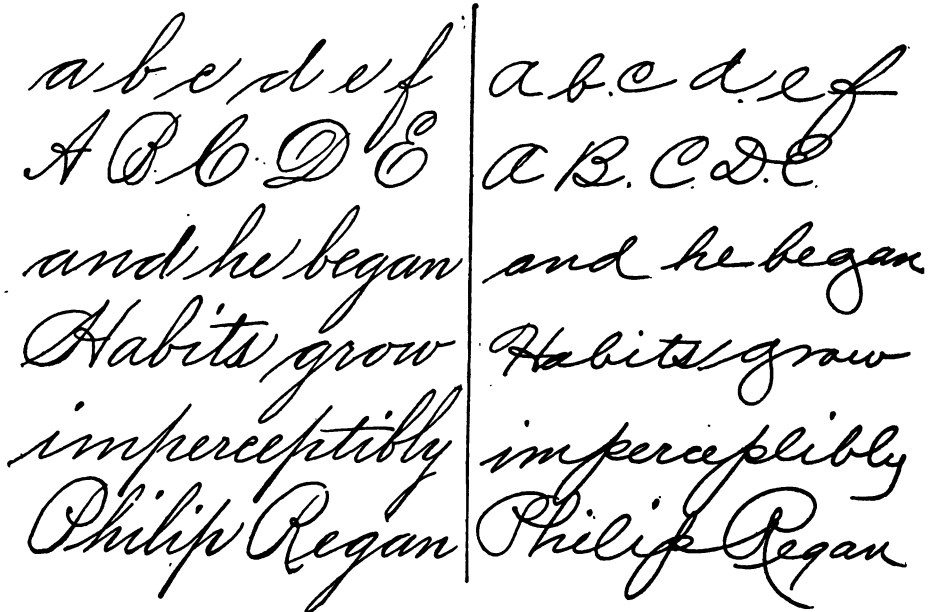 a b c d e f
A B C D E
and he began
Habits grow
imperceptibly
Philip Regan
a b. c d. e f
A B. C. D. E.
and he began
Habits grow
imperceptibly
Philip Regan